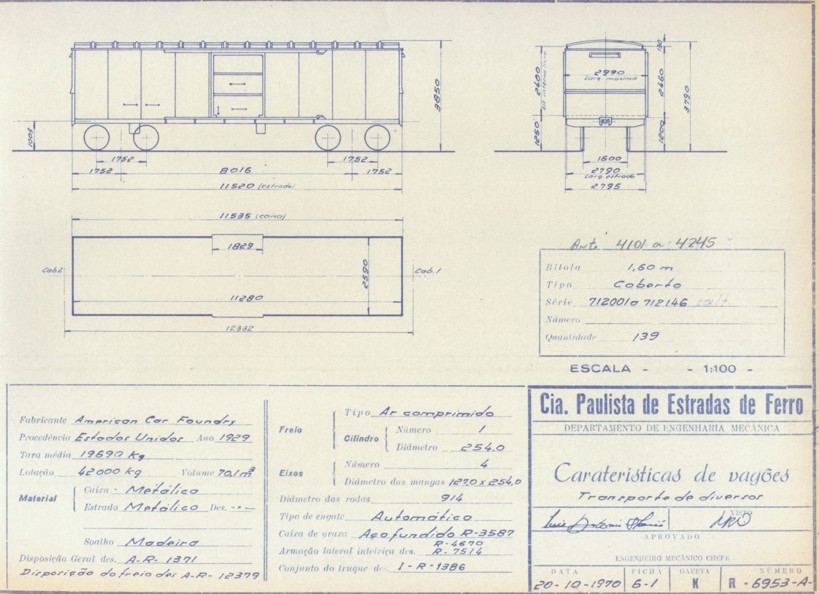 3850
1004
1752
1752
1752
8016
1752
11520 (estrado)
2400
1250
2990
Larg. maxima
190
2460
1200
3790
1600
2790
Larg. estrado
2795
11535 (caixa)
1829
Cab.2
2590
Cab.1
11280
12332
Ant. 4101 a 4245
Bitola 1,60 m
Tipo Coberto
Série 712001 a 712146
Número
Quantidade 139
ESCALA - - 1:100 -
Fabricante American Car Foundry
Procedência Estados Unidos Ano 1929
Tara média 19690 Kg
Lotação 42000 kg Volume 70,1 m³
Material
Caixa - Metálica
Estrado Metálico Des. ---
Soalho Madeira
Disposição Geral des. A-R- 1371
Disposição do freio des A-R- 12379
Freio
Tipo Ar comprimido
Cilindro
Número 1
Diâmetro 254,0
Eixos
Número 4
Diâmetro das mangas 127,0 x 254,0
Diâmetro das rodas 914
Tipo de engate Automático
Caixa de graxa Aço fundido R-3587
R-4670
Armação lateral inteiriça des. R-7514
Conjunto do truque des. I-R-1386
Cia. Paulista de Estradas de Ferro
DEPARTAMENTO DE ENGENHARIA MECÂNICA
Carateristicas de vagões
Transporte de diversos
VISTO
APROVADO
ENGENHEIRO MECÂNICO CHEFE
DATA FICHA GAVETA NÚMERO
20-10-1970 6-1 K R-6953-A-